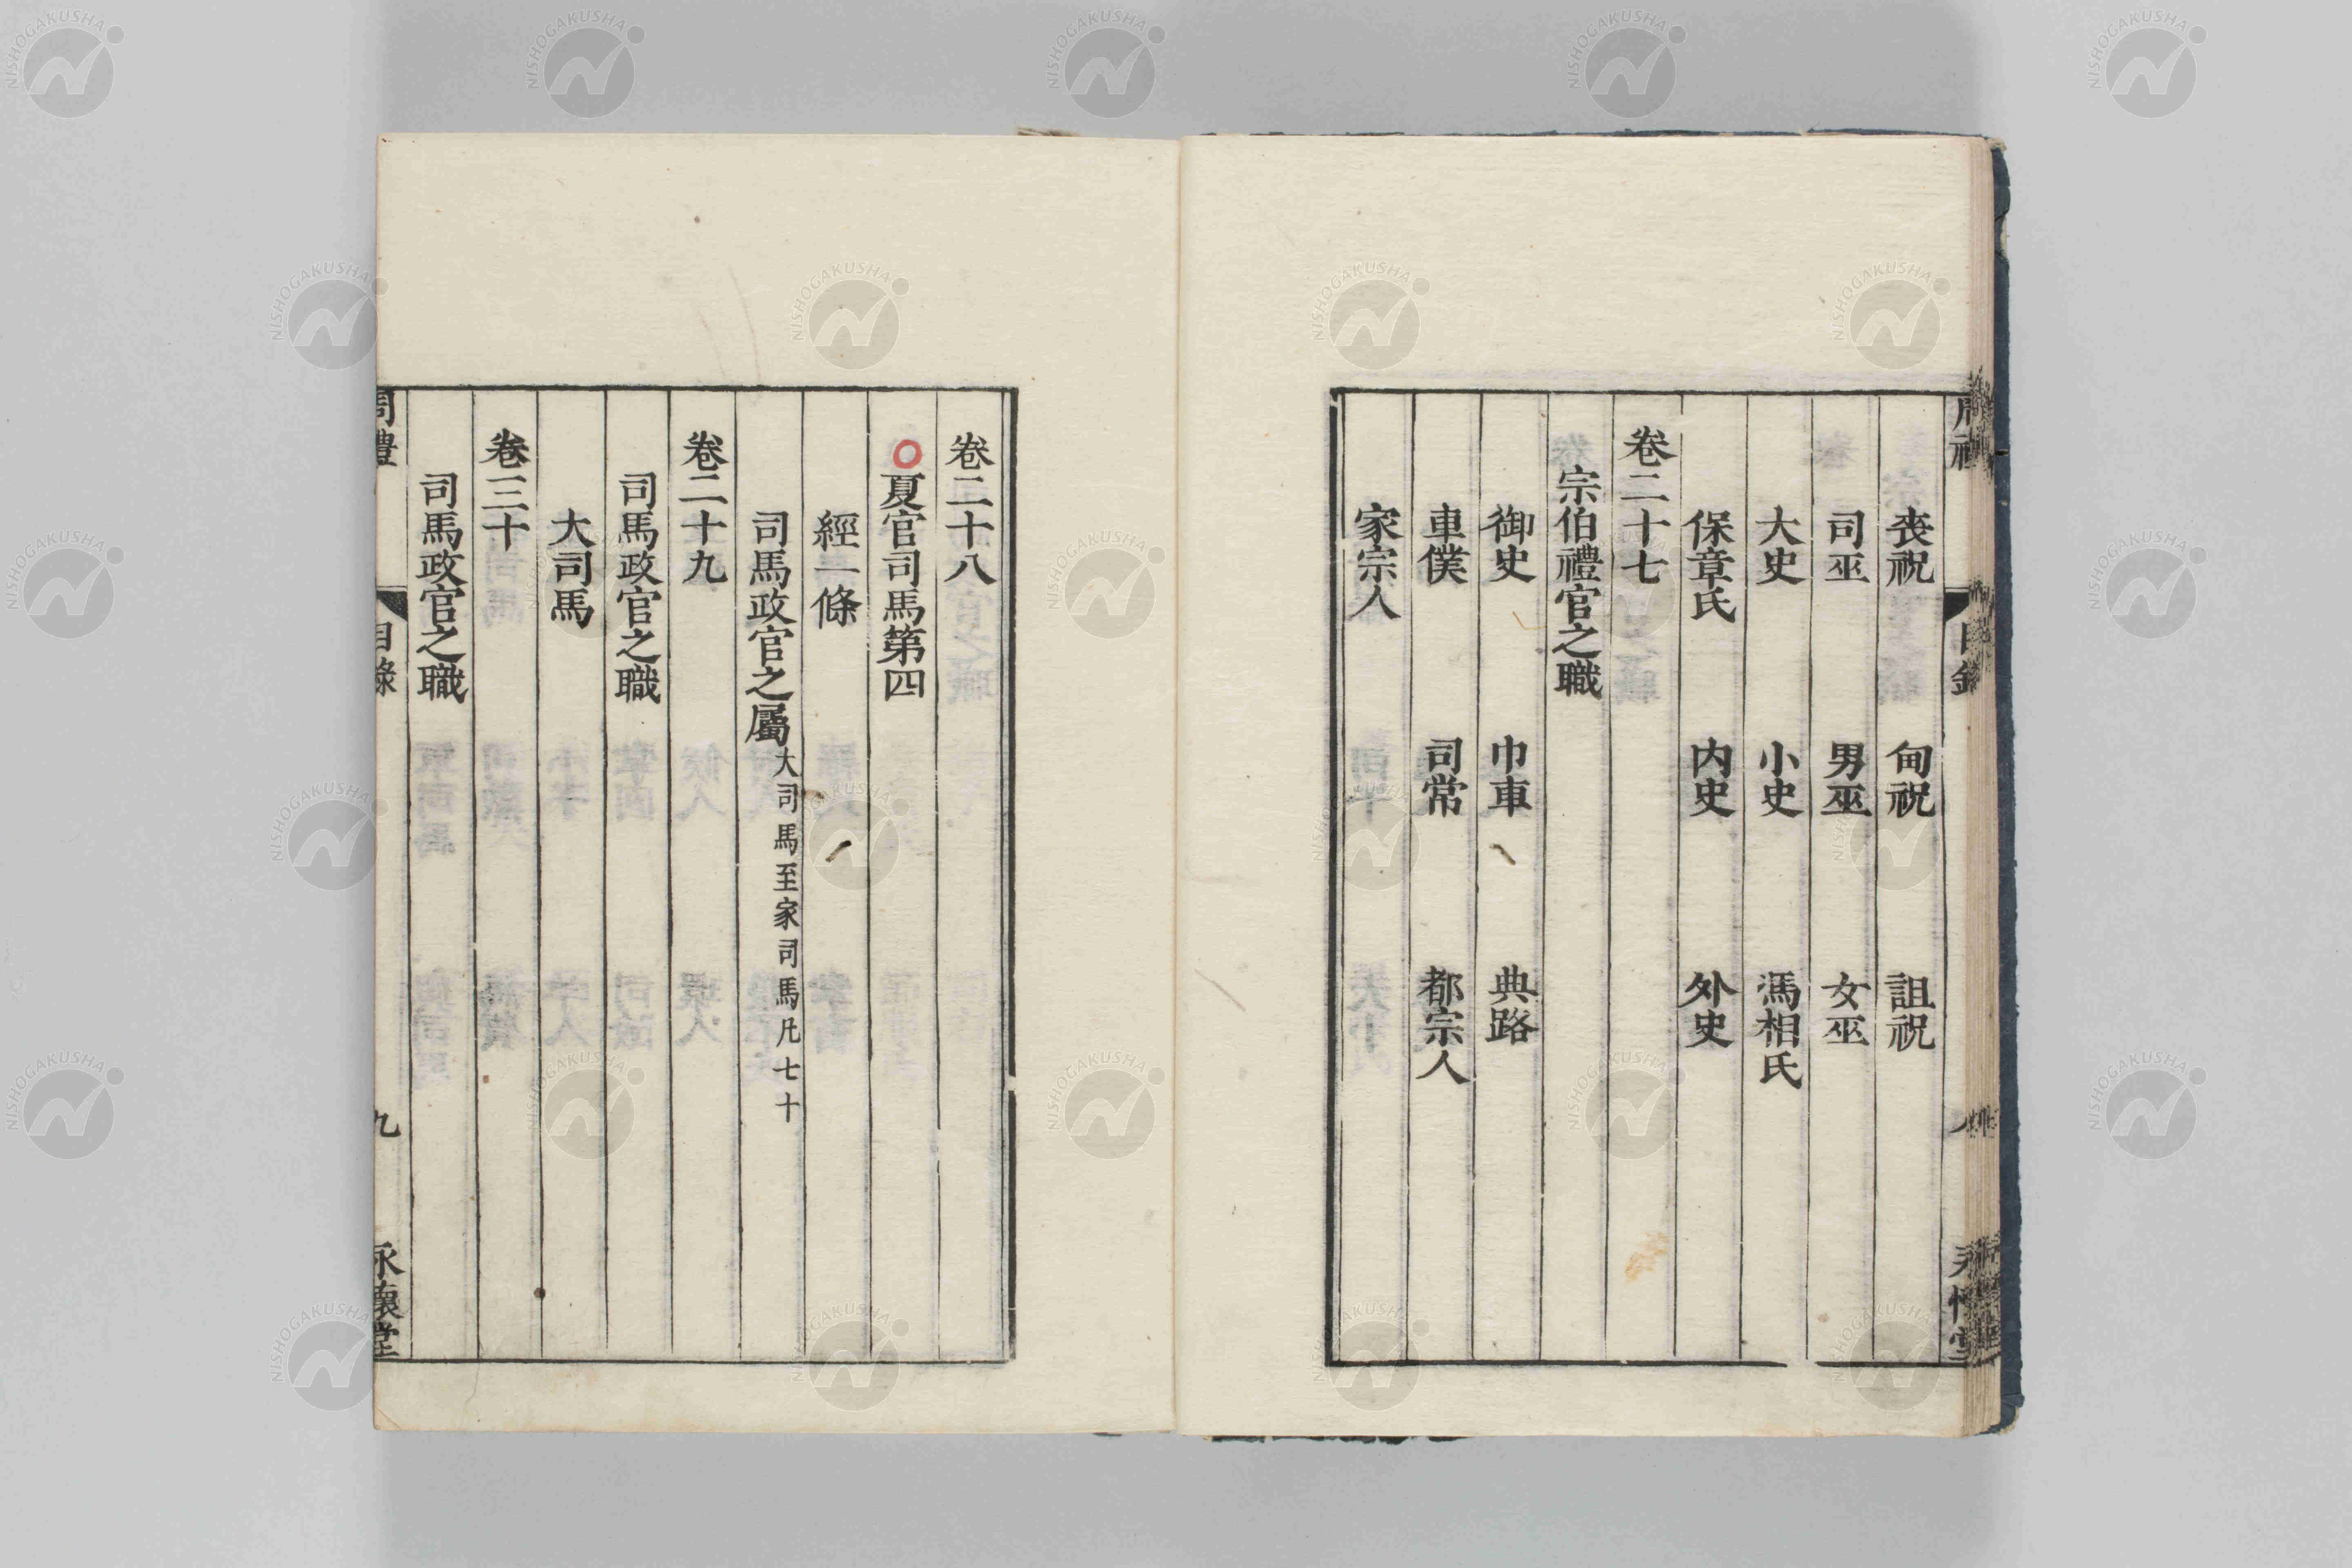 喪祝 甸祝 詛祝
司巫 男巫 女巫
大史 小史 馮相氏
保章氏 内史 外史
卷二十七
宗伯禮官之職
御史 巾車 典路
車僕 司常 都宗人
家宗人
卷二十八
夏官司馬第四
經一條
司馬政官之屬大司馬至家司馬凡七十
卷二十九
司馬政官之職
大司馬
卷三十
司馬政官之職
周禮 目錄 九 永懷堂
NISHOGAKUSHA